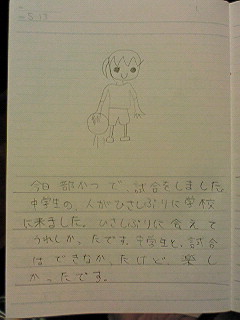 今日部かつで、試合をしました。
中学生の、人がひさしぶりに学校
に来ました。ひさしぶりに会えて
うれしかったです。中学生と、試合
はできなかったけど、楽し
かったです。